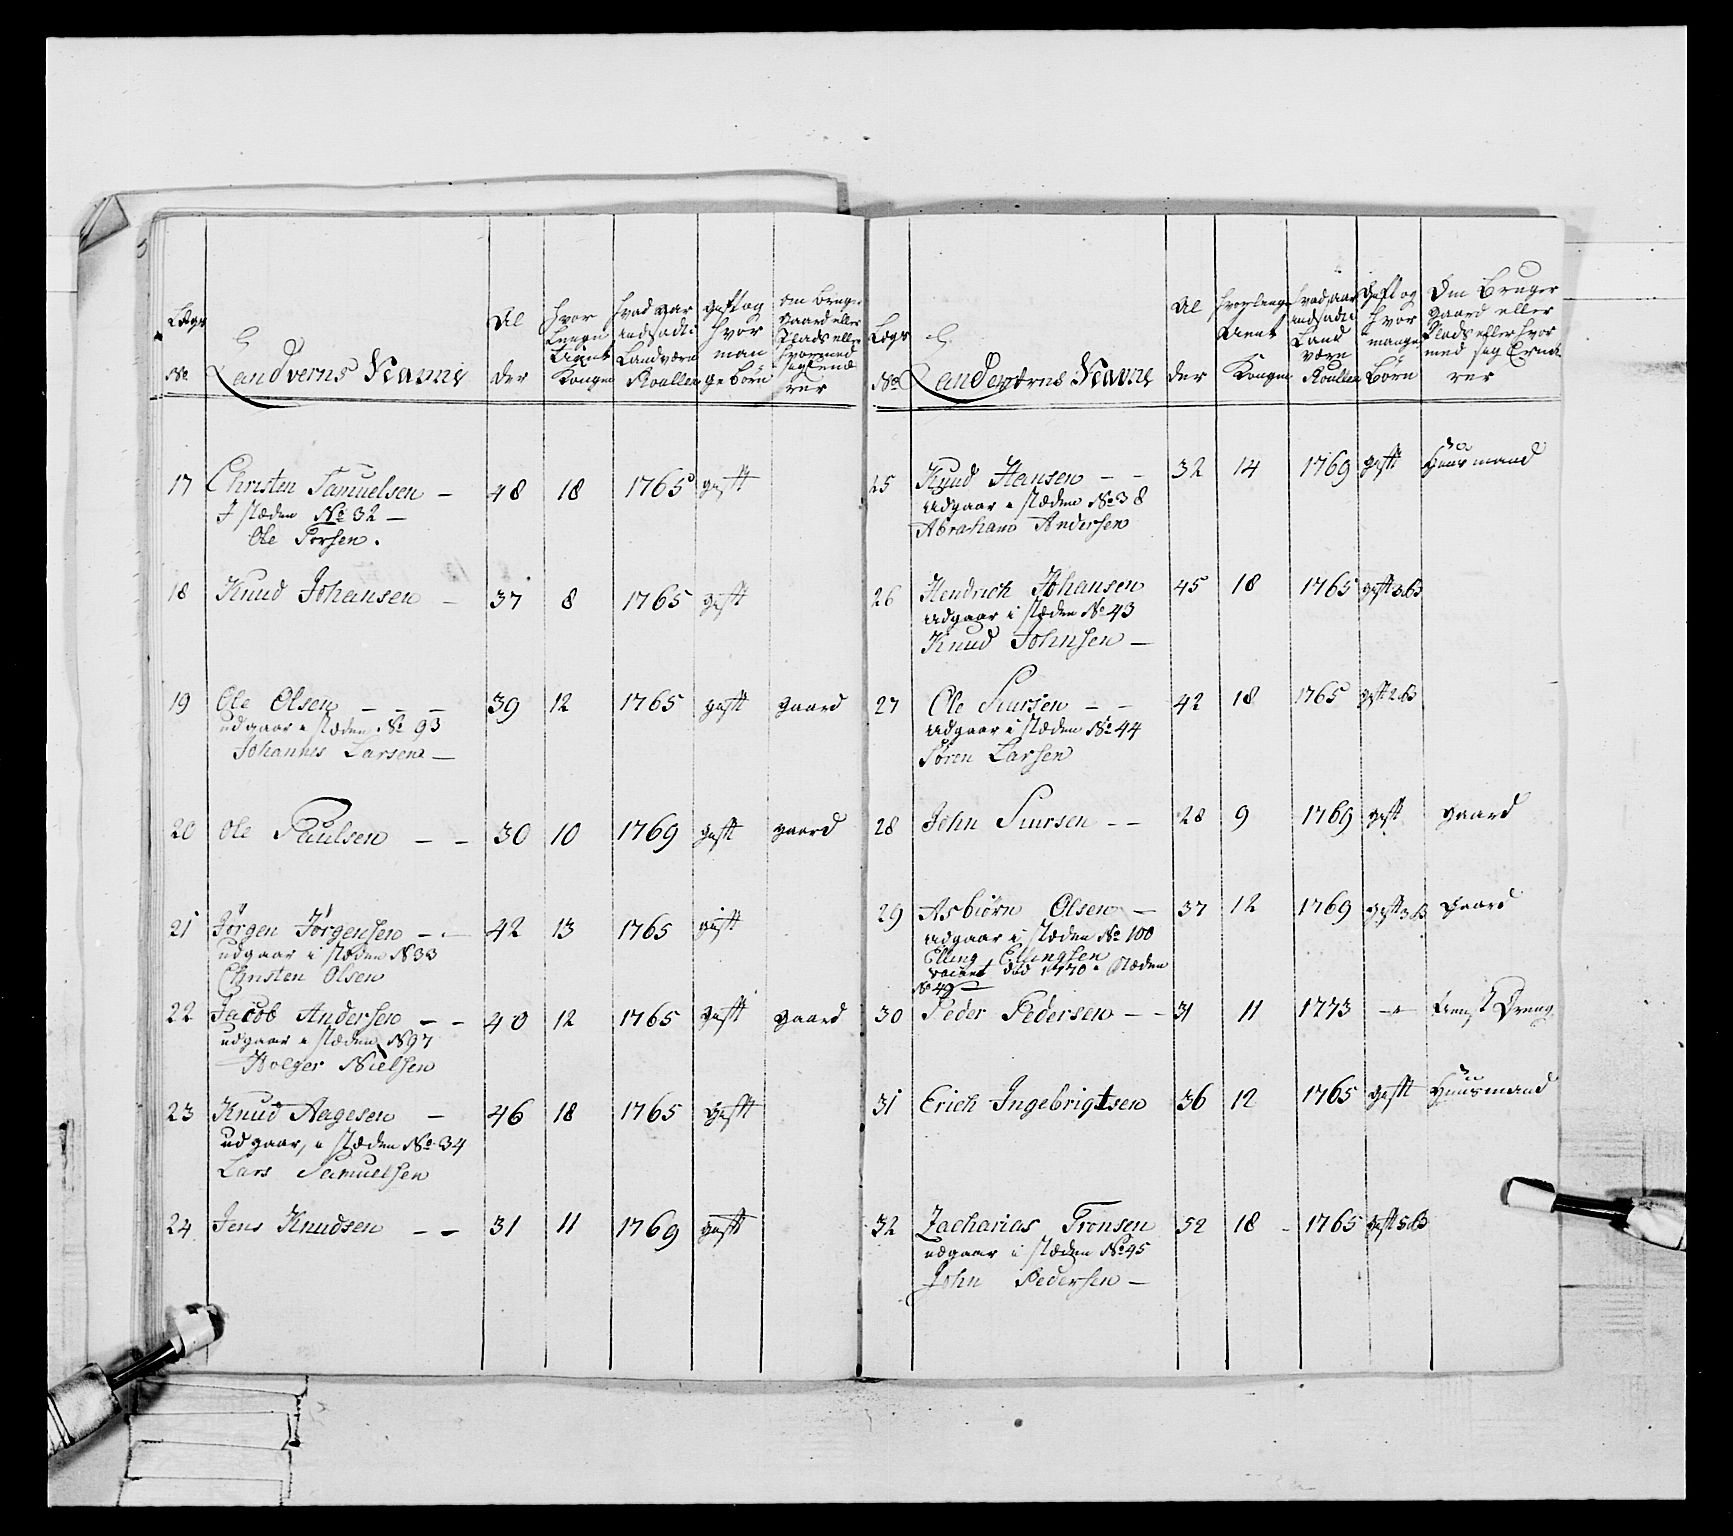 Lægs No
Landverns Navne
Alder
hvor Længe tient Kongen
hvad aar indsadt i Landvern Roullen
gift og hvor mange børn
om bruger gaard eller Plads eller hvormed sig ernærer
17 Christen Samuelsen — 48 18 1765 gift
I stæden No 32 —
Ole Torsen.
18 Knud Johansen — 37 8 1765 gift
19 Ole Olsen — — — 39 12 1765 gift gaard
udgaar i stæden No 93
Johannes Larsen —
20 Ole Paulsen — — 30 10 1769 gift gaard
21 Jørgen Jørgensen — 42 13 1765 gift
udgaar i stæden N 33
Christen Olsen
22 Jacob Andersen — — 40 12 1765 gift gaard
udgaar i stæden N 97
Holger Nielsen
23 Knud Aagesen — 46 18 1765 gift
udgaar, i stæden No 34
Lars Samuelsen
24 Jens Knudsen — — 31 11 1769 gift
Lægs No
Landværns Navne
Alder
hvorlenge tient Kongen
hvad aar indsadt i Land værn Roullen
Gift og hvor mange Børn
Om Bruger gaard eller Plads eller hvor med sig Ernærer
25 Knud Hansen — — 32 14 1769 gift Huusmand
udgaar i stæden No 38
Abraham Andersen
26 Hendrich Johansen 45 18 1765 gift 3 b
udgaar i stæden No 43
Knud Johnsen —
27 Ole Siursen — — 42 18 1765 gift 2 b
udgaar i stæden No 44
Søren Larsen
28 John Siursen — — 28 9 1769 gift gaard
29 Asbiørn Olsen — 37 12 1769 gift 3 b gaard
udgaar i stæden No 100
Elling Ellingsen
død 1770 i stæden
No 49 —
30 Peder Pedersen — — 31 11 1773 — tienst Dreng
31 Erich Ingebrigtsen 36 12 1765 gift Huusmand
32 Zacharias Tronsen 52 18 1765 gift 5 b
udgaar i stæden No 45
John Pedersen —